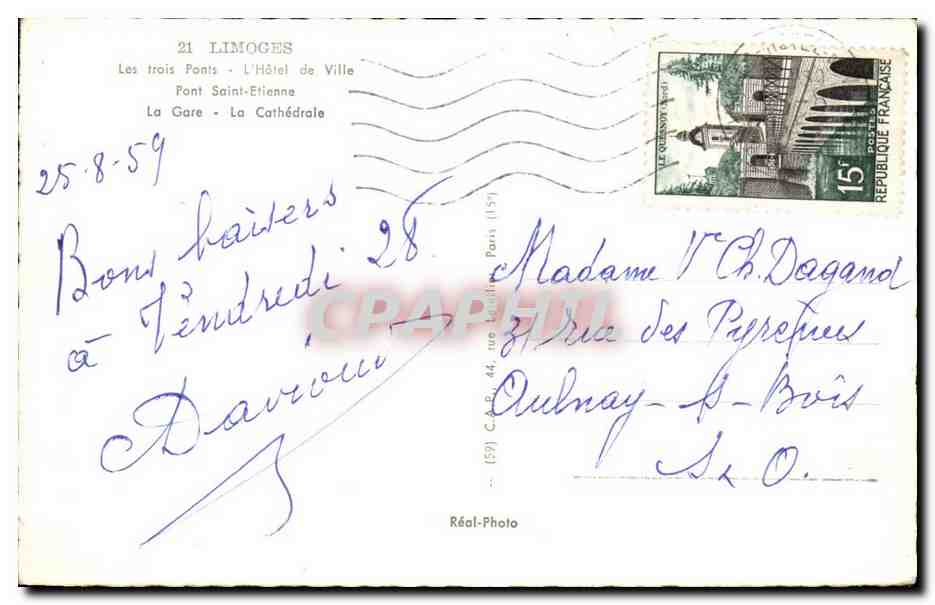 21 LIMOGES
Les trois Ponts - L'Hôtel de Ville
Pont Saint-Etienne
La Gare - La Cathédrale
25-8-59
Bons baisers
à Vendredi 28
LE QUESNOY (Nord)
POSTES
15F
REPUBLIQUE FRANÇAISE
Madame Vve Ch. Dagand
31 rue des Pyrenées
Aulnay-s-Bois
S & O.
(59) C.A.P. 44, rue Paris (15e)
Réal-Photo
CPAPHIL